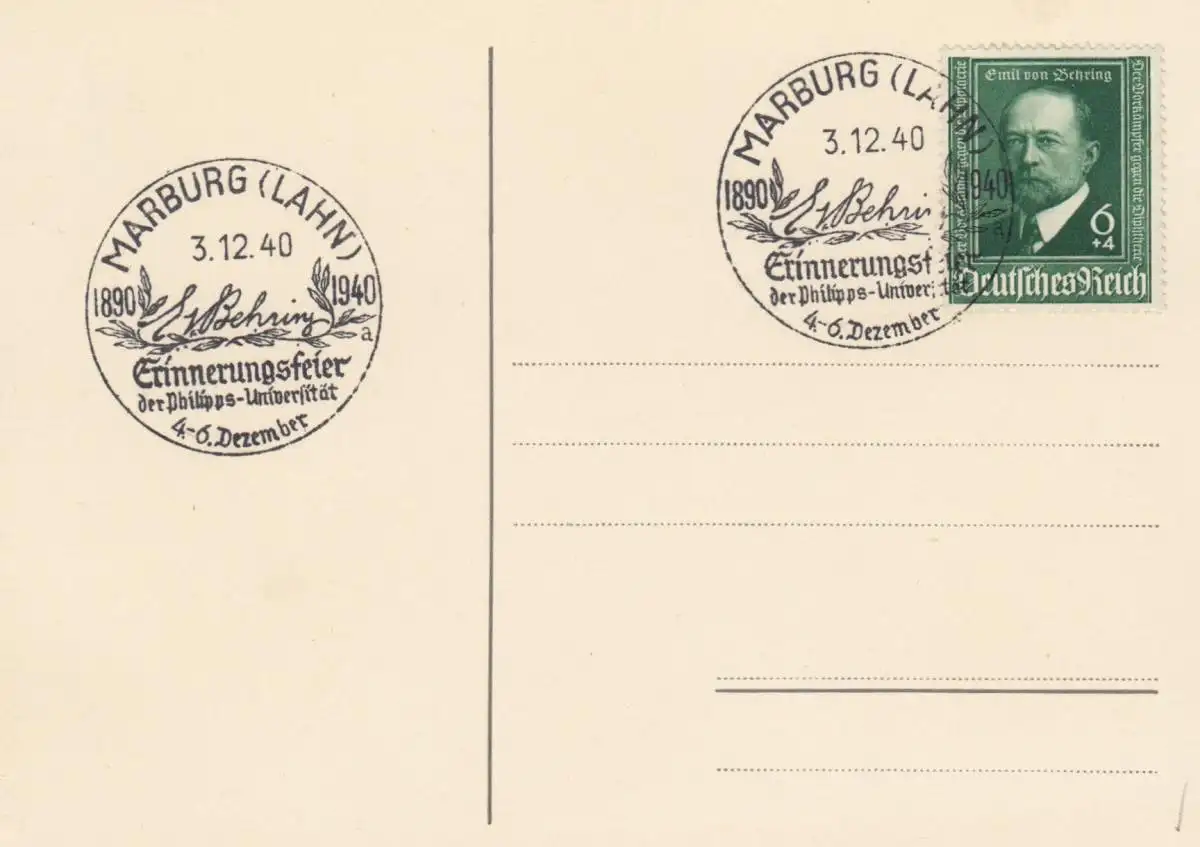 MARBURG (LAHN)
3.12.40
1890 1940
E v Behring
a
Erinnerungsfeier
der Philipps-Universität
4.-6. Dezember
MARBURG (LAHN)
3.12.40
1890 1940
E v Behrin
a
Erinnerungsfeier
der Philipps-Universität
4.-6. Dezember
Emil von Behring
Der Vorkämpfer gegen die Diphtherie
6
+4
Deutsches Reich